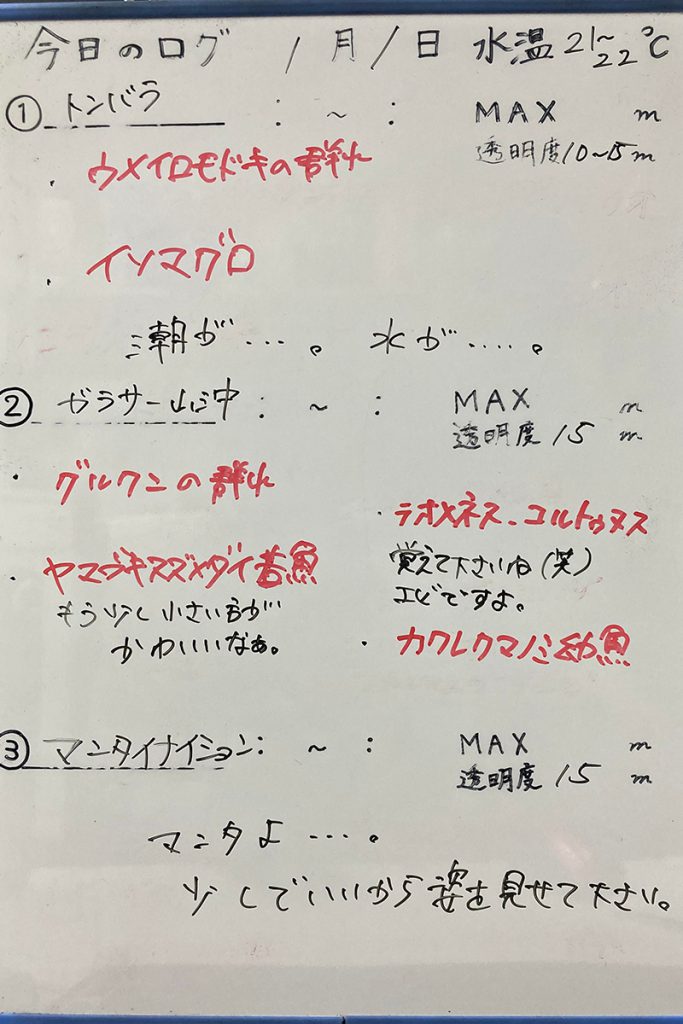 今日のログ 1月1日 水温21~22℃
① トンバラ : ~ : MAX m
透明度10~15m
・ウメイロモドキの群れ
・イソマグロ
潮が…。水が….。
② ガラサー山中 : ~ : MAX m
透明度15m
・グルクンの群れ
・テオメネス.コルトゥヌス
覚えて下さいね(笑)
エビですよ。
・ヤマブキスズメダイ若魚
もう少し小さい方が
かわいいなぁ。
・カクレクマノミ幼魚
③ マンタイナイション: ~ : MAX m
透明度15m
マンタよ….。
少しでいいから姿を見せて下さい。